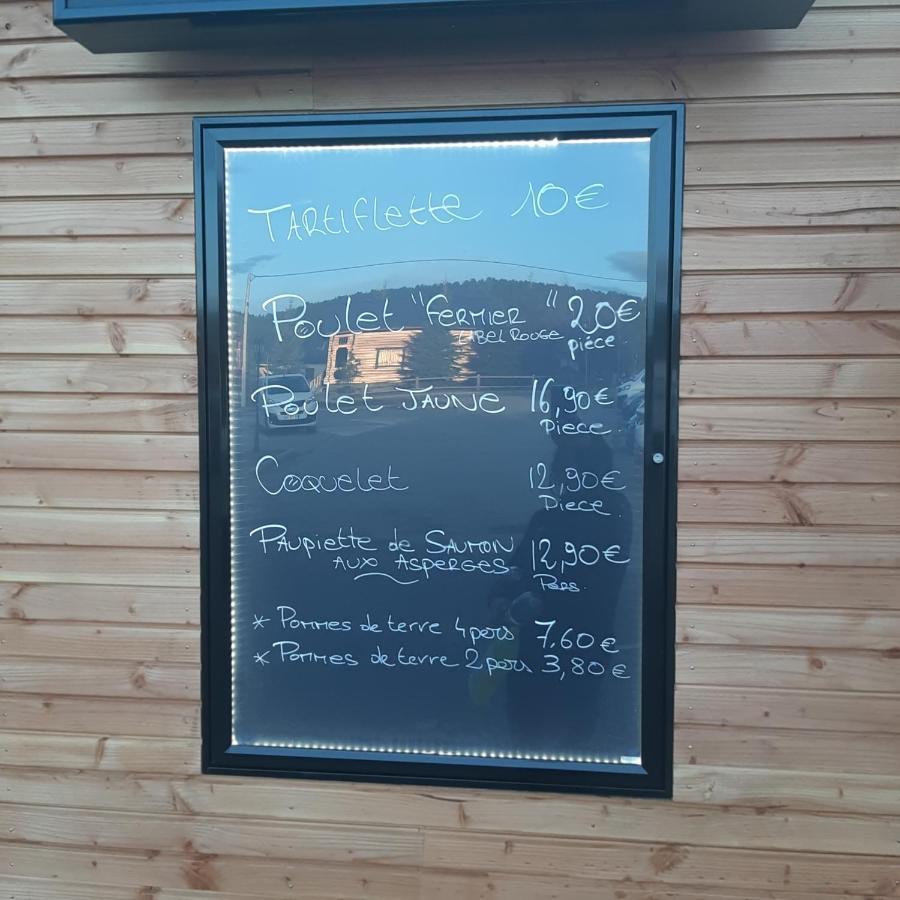 Tartiflette 10€
Poulet "Fermier" 20€
Label Rouge pièce
Poulet Jaune 16,90€
Piece.
Coquelet 12,90€
Piece.
Paupiette de Saumon 12,90€
aux Asperges Pers.
* Pommes de terre 4 pers 7.60€
* Pommes de terre 2 pers. 3,80€